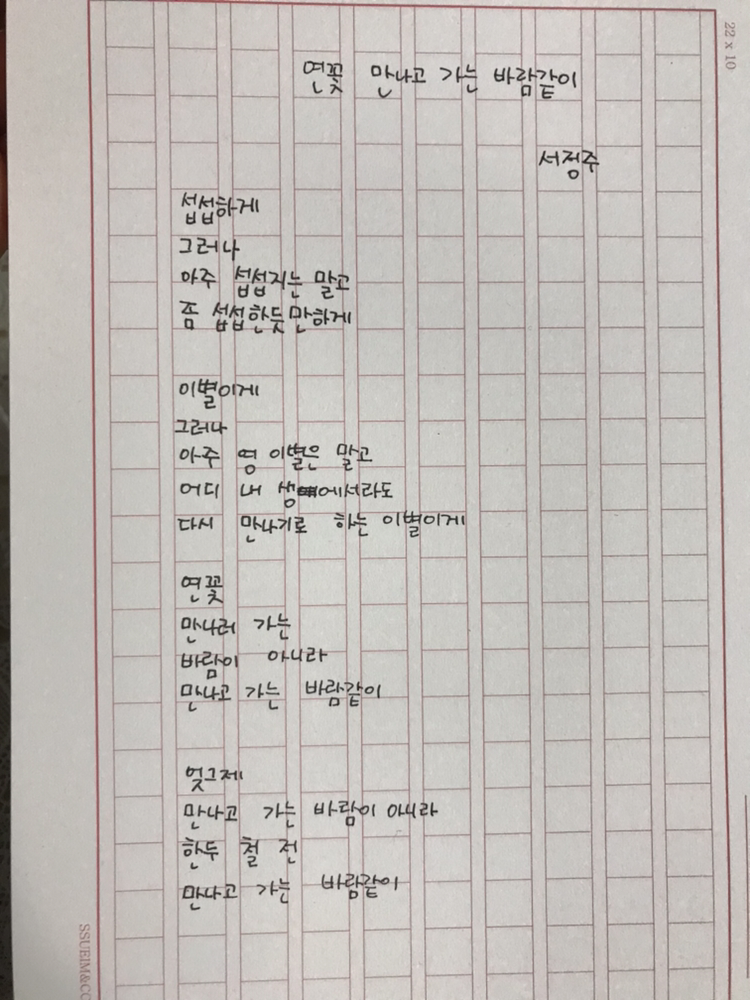 22 x 10
연꽃 만나고 가는 바람같이
서정주
섭섭하게
그러나
아주 섭섭지는 말고
좀 섭섭한듯만하게
이별이게
그러나
아주 영 이별은 말고
어디 내 생에서라도
다시 만나기로 하는 이별이게
연꽃
만나러 가는
바람이 아니라
만나고 가는 바람같이
엊그제
만나고 가는 바람이 아니라
한두 철 전
만나고 가는 바람같이